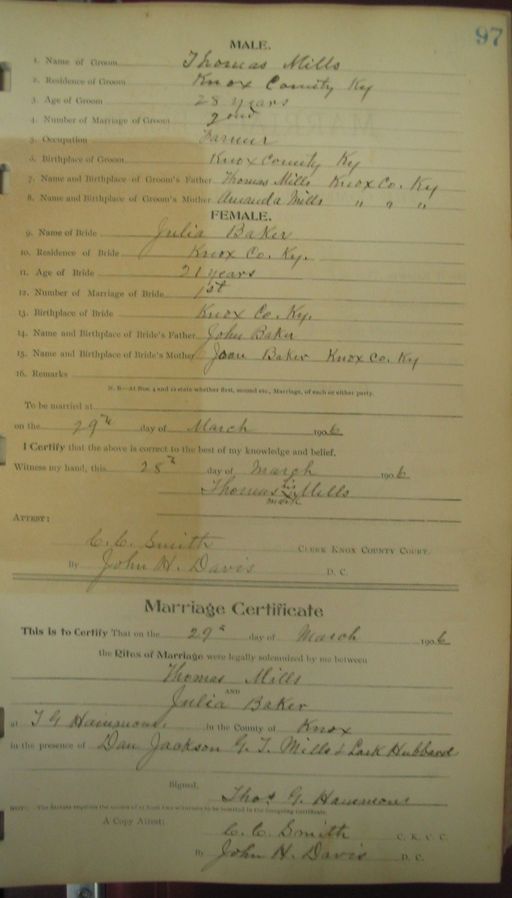 97
MALE.
1. Name of Groom Thomas Mills
2. Residence of Groom Knox County Ky
3. Age of Groom 28 years
4. Number of Marriage of Groom 2nd
5. Occupation Farmer
6. Birthplace of Groom Knox County Ky
7. Name and Birthplace of Groom's Father Thomas Mills Knox Co. Ky
8. Name and Birthplace of Groom's Mother Amanda Mills " " "
FEMALE.
9. Name of Bride Julia Baker
10. Residence of Bride Knox Co. Ky.
11. Age of Bride 21 years
12. Number of Marriage of Bride 1st
13. Birthplace of Bride Knox Co. Ky.
14. Name and Birthplace of Bride's Father John Baker
15. Name and Birthplace of Bride's Mother Joan Baker Knox Co. Ky
16. Remarks
N. B.—At Nos. 4 and 12 state whether first, second etc., Marriage, of each or either party.
To be married at
on the 29th day of March 1906
I Certify that the above is correct to the best of my knowledge and belief.
Witness my hand, this 28th day of March 1906
Thomas his Mills
mark
ATTEST:
C. C. Smith CLERK KNOX COUNTY COURT.
By John H. Davis D. C.
Marriage Certificate
This is to Certify That on the 29th day of March 1906
the Rites of Marriage were legally solemnized by me between
Thomas Mills
AND
Julia Baker
at T G Hammons. in the County of Knox
in the presence of Dan Jackson G. T. Mills & Lark Hubbard
Signed, Thos G. Hammons
A Copy Attest: C. C. Smith C. K. C. C.
By John H. Davis D. C.